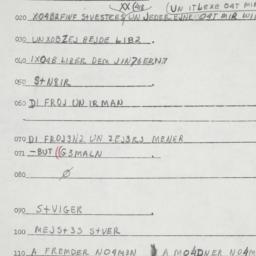 (UN ITLEXE O4T MIR
020 XO4BRFIVE SYVESTRES UN JEDER EJNE O4T MIR WI
030 UNXOBZEJ BEJDE LIB2.
040 IXO4B LIBER DEM JINZBERNT
050 S+N8IR
060 DI FROJ UN IR MAN
070 DI FROJ3N2 UN ZEJ3RJ MENER
071 -BUT ((G3MALN
080 Ø
090 S+VIGER
100 MEJS+33 S+VER
110 A FREMDER NO4M3N A MO4DNER NO4M